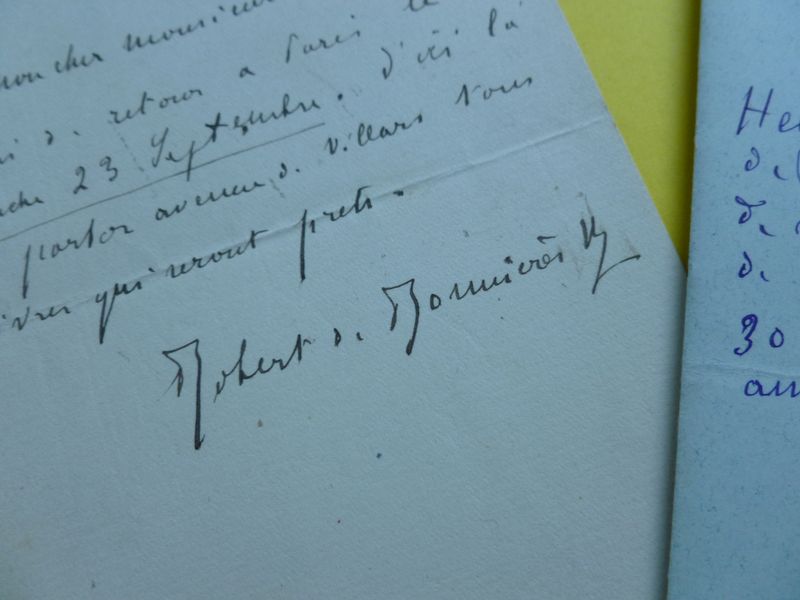 mon cher monsieur
de retour a Paris le
23 Septembre. d'ici là
porter avenue de Villars tous
qui seront prets.
Robert de Bonnières
He
de
de
de
30